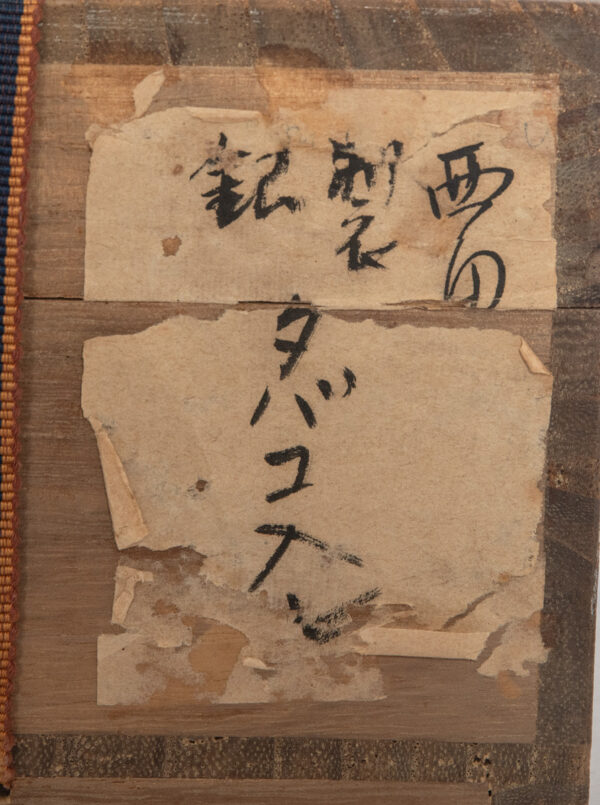 西田
銀製
タバコ入レ